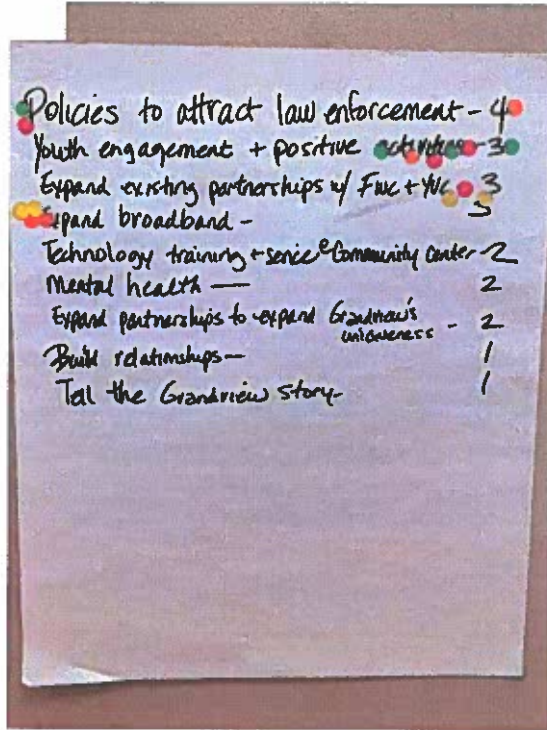 Policies to attract law enforcement - 4
Youth engagement + positive activities - 3
Expand existing partnerships w/ FWC + YVC 3
Expand broadband - 3
Technology training + service @ Community Center - 2
Mental health — 2
Expand partnerships to expand Grandview's uniqueness - 2
Build relationships — 1
Tell the Grandview story - 1